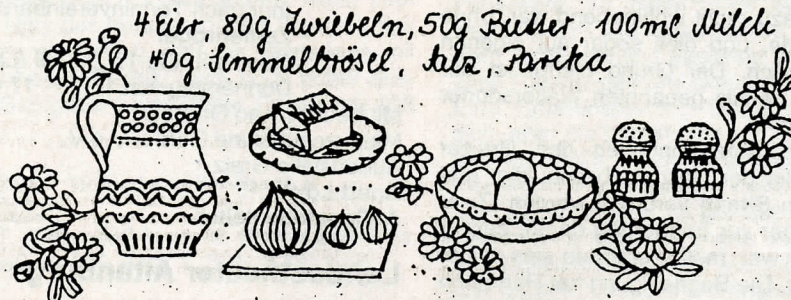 4 Eier, 80g Zwiebeln, 50g Butter, 100ml Milch
40g Semmelbrösel, Salz, Parika
Butter